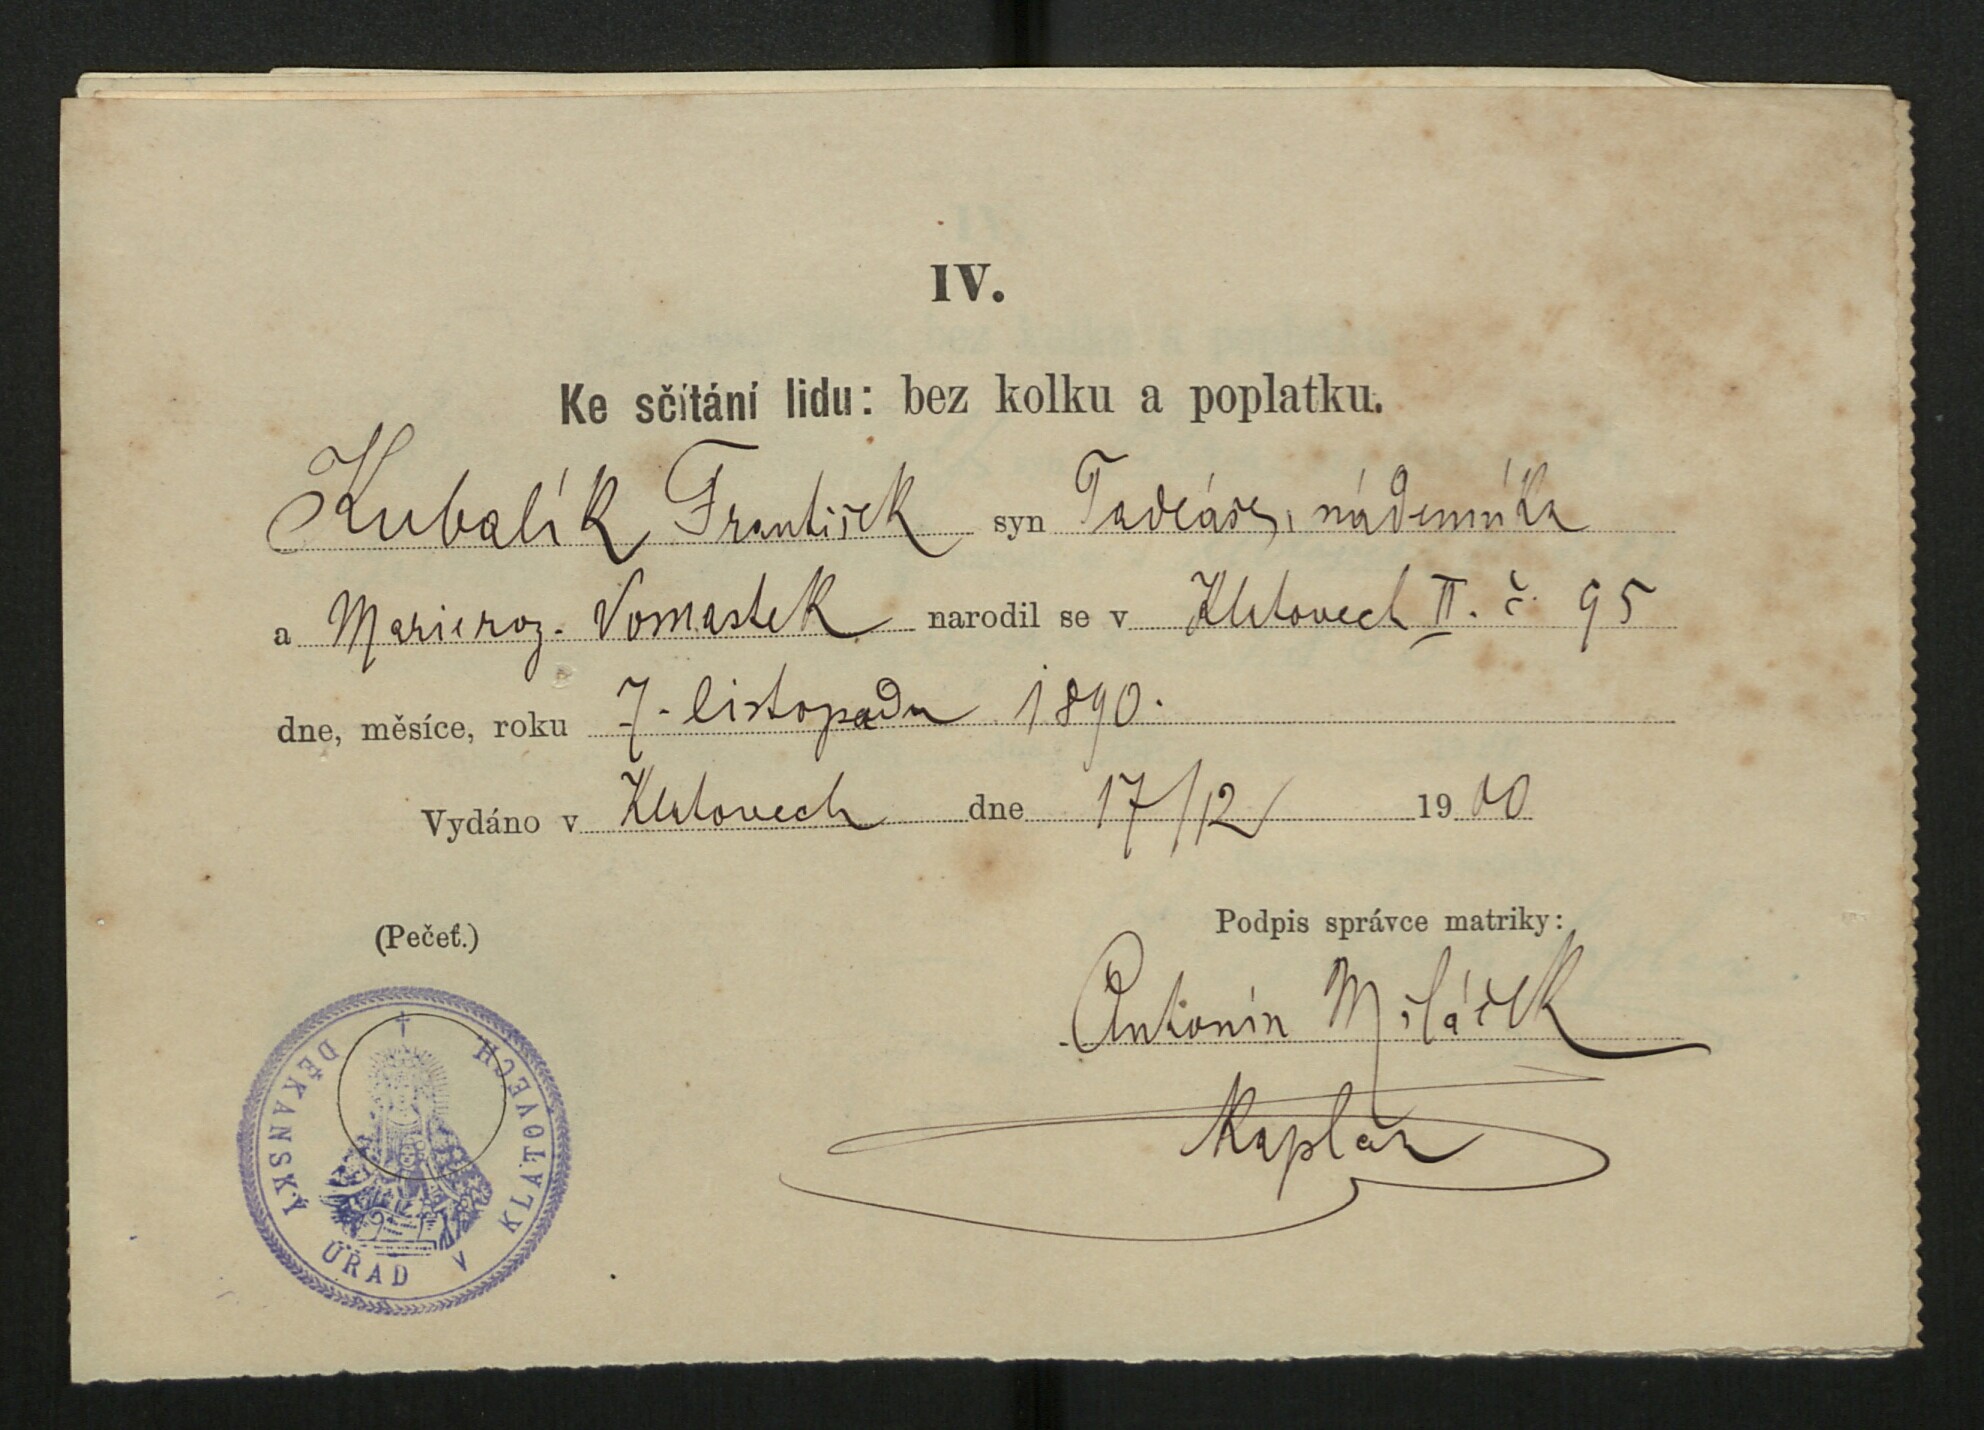 IV.
Ke sčítání lidu: bez kolku a poplatku.
Kubalík František syn Tadeáše, nádenníka
a Marie roz. Vomastek narodil se v Klatovech II. č. 95
dne, měsíce, roku 7. listopadu 1890.
Vydáno v Klatovech dne 17/12 1900
(Pečeť.)
Podpis správce matriky:
Antonín
kaplan
DĚKANSKÝ ÚŘAD V KLATOVECH